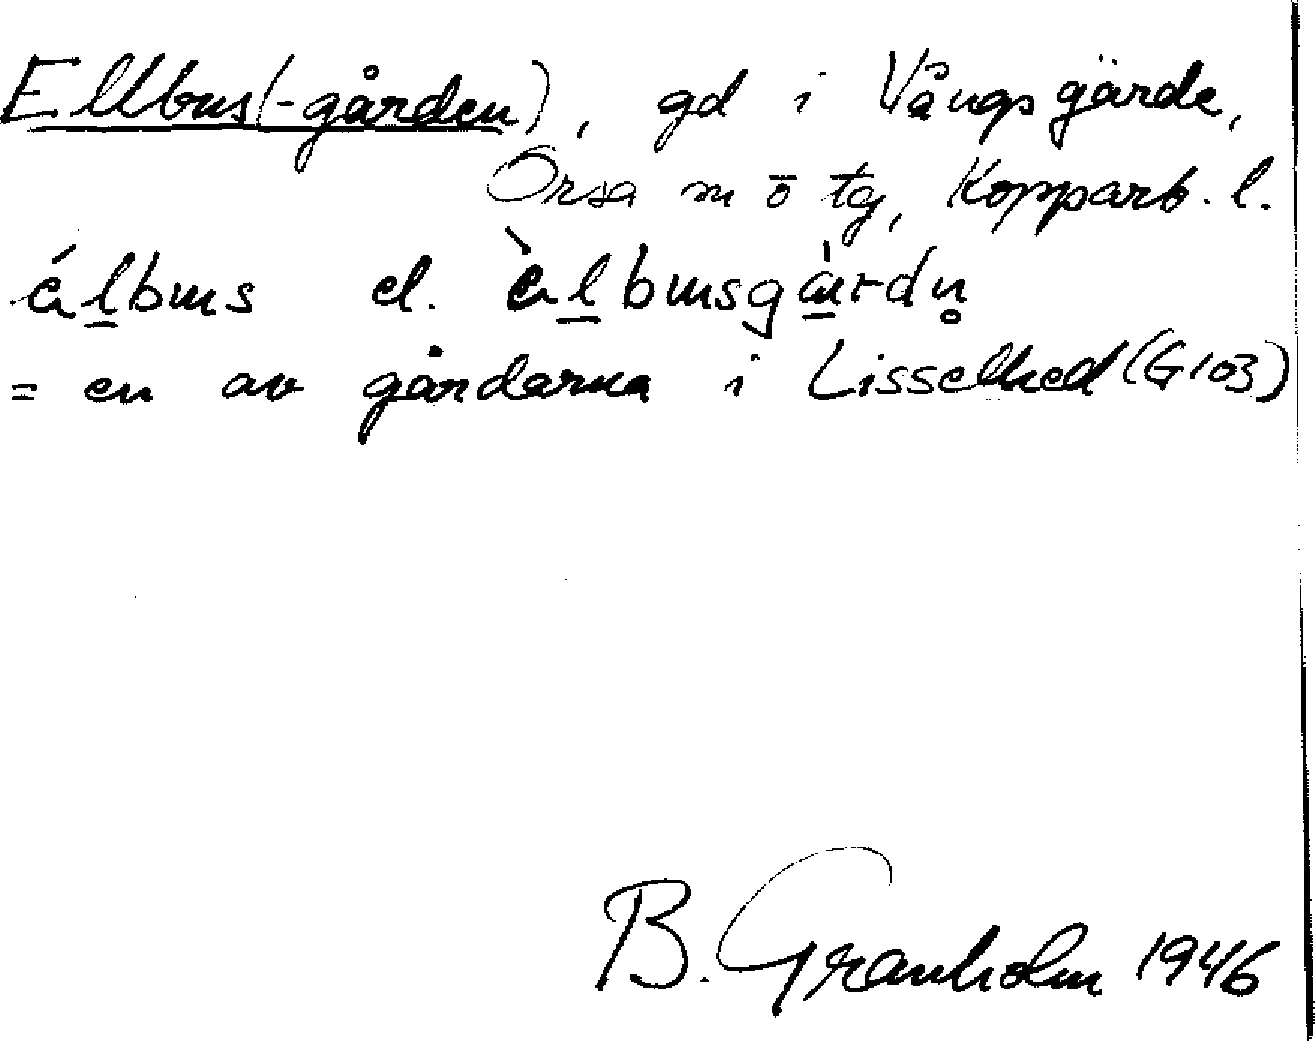 Ellbus(-gården), gd i Vångsgärde,
Orsa m o tg, Kopparb. l.
él̲bus el. èl̲busgà̲rdn̥
= en av gårdarna i Lisselhed (G103)
B. Granholm 1946